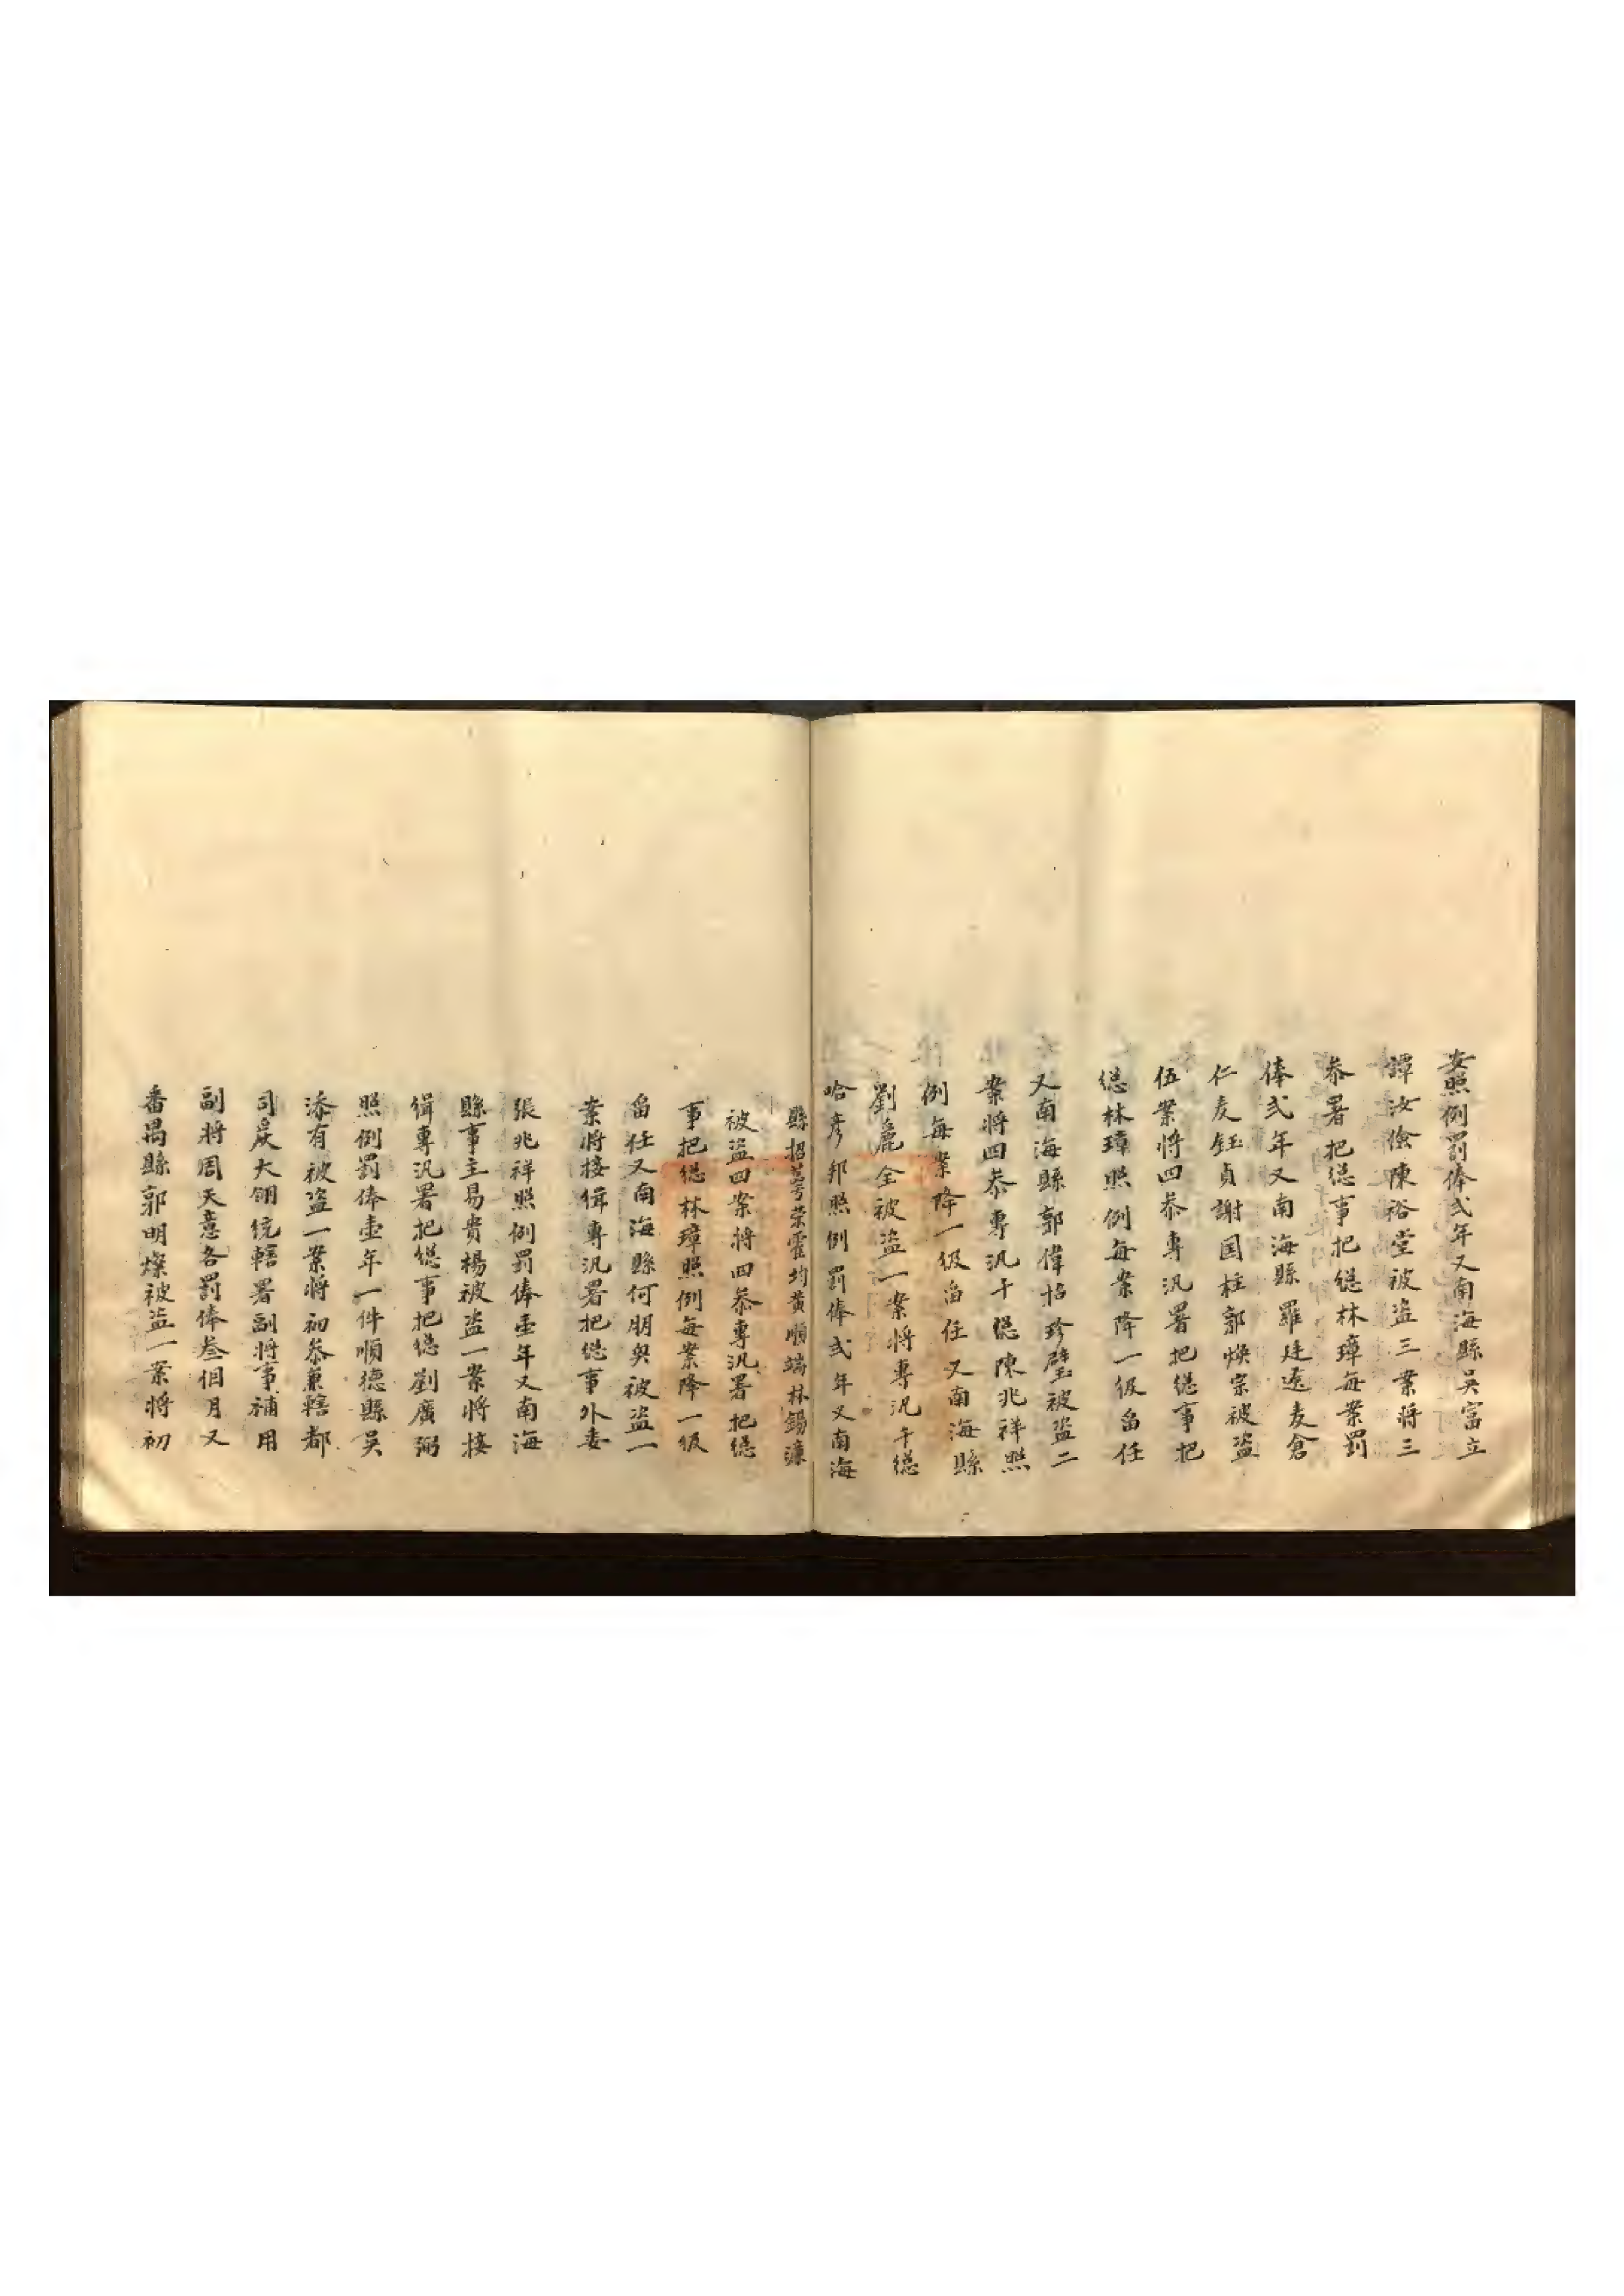 安照例罰俸弍年又南海縣吳富立
譚汝儉陳裕堂被盜三案將三
叅署把總事把總林璋每案罰
俸弍年又南海縣羅廷遠麦倉
仁麦鈺貞謝国柱郭煥宗被盜
伍案將四叅專汎署把總事把
總林璋照例每案降一級畱任
又南海縣郭偉怗珍璧被盜二
案將四叅專汎千總陳兆祥照
例每案降一級畱任又南海縣
劉麁全被盜一案將專汎千總
哈彥邦照例罰俸弍年又南海
縣招萼荣霍均黃順端林錫濂
被盜四案將四叅專汎署把總
事把總林璋照例每案降一級
畱任又南海縣何朋奐被盜一
案將接緝專汎署把總事外委
張兆祥照例罰俸壹年又南海
縣事主易贵楊被盜一案將接
緝專汎署把總事把總劉廣弼
照例罰俸壹年一件順德縣吳
添有被盜一案將初叅兼轄都
司戾大翎统轄署副將事補用
副將周天意各罰俸叁個月又
番禺縣郭明燦被盜一案將初